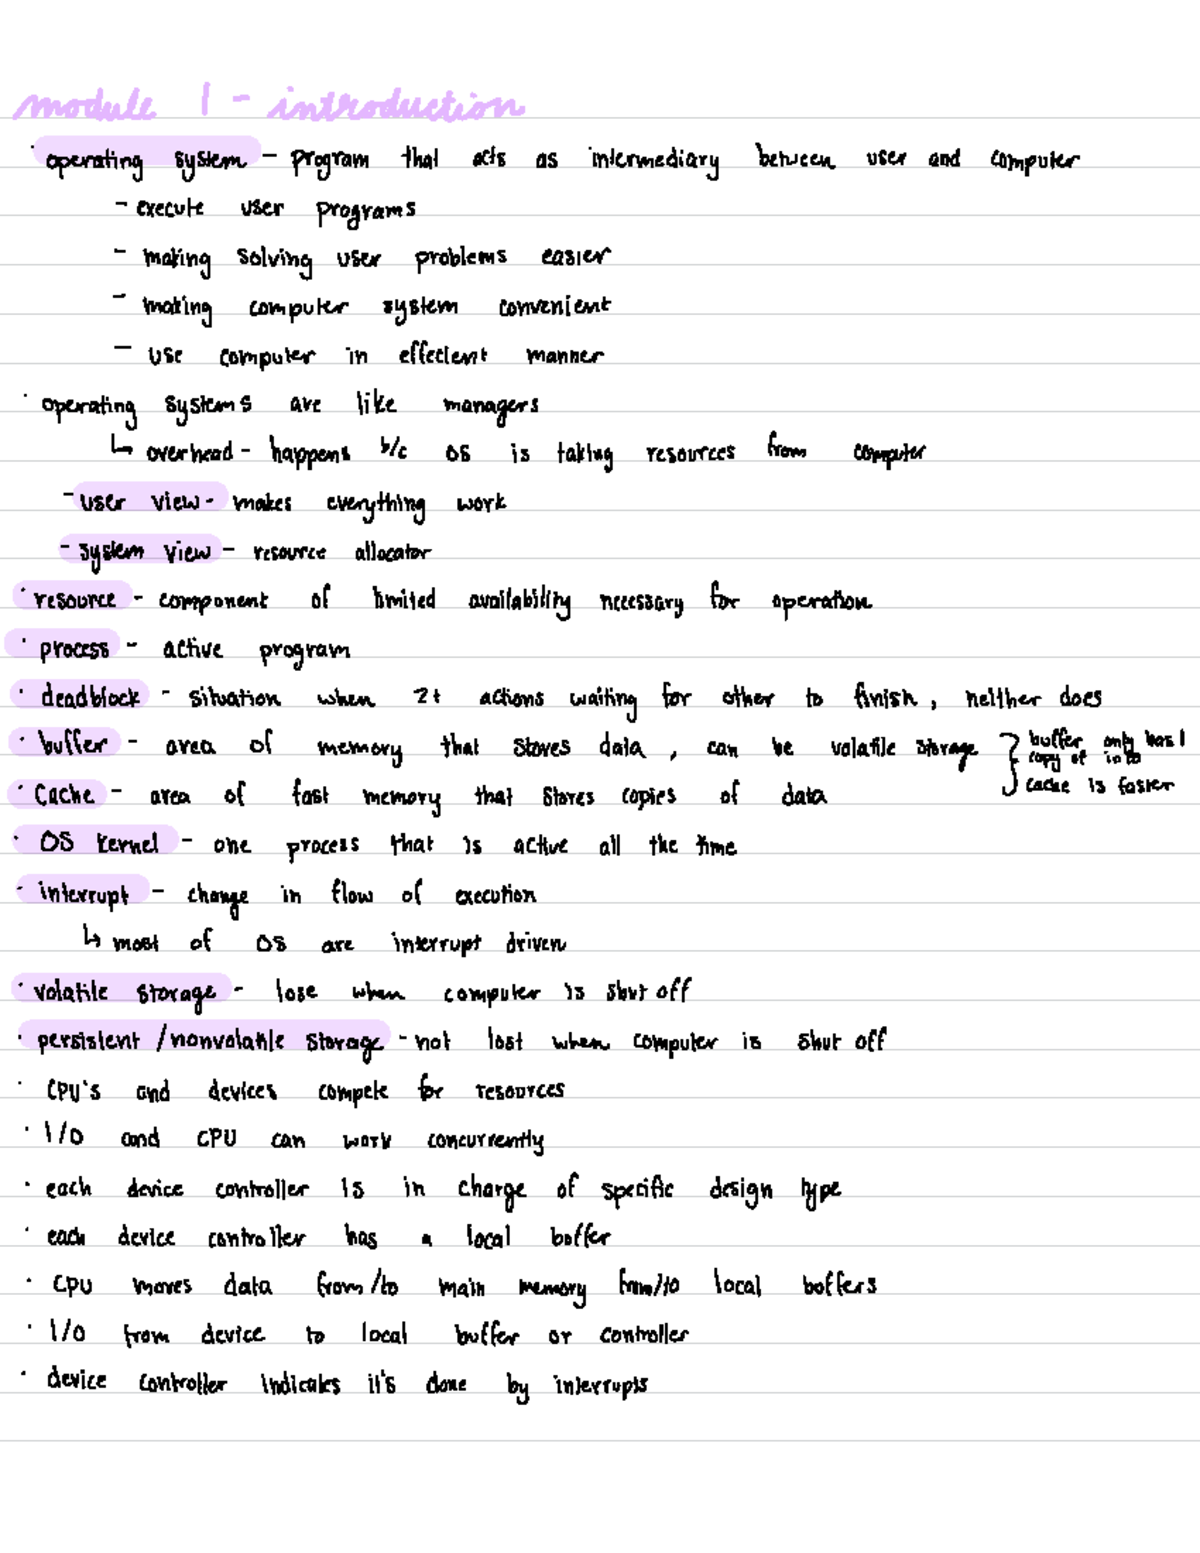 module 1 - introduction
· operating system - program that acts as intermediary between user and computer
- execute user programs
- making solving user problems easier
- making computer system convenient
- use computer in effecient manner
· operating systems are like managers
↳ overhead - happens b/c OS is taking resources from computer
- user view - makes everything work
- system view - resource allocator
· resource - component of limited availability necessary for operation
· process - active program
· deadblock - situation when 2+ actions waiting for other to finish, neither does
· buffer - area of memory that stores data, can be volatile storage } buffer only has 1 copy of info
· Cache - area of fast memory that stores copies of data } cache is faster
· OS kernel - one process that is active all the time
· interrupt - change in flow of execution
↳ most of OS are interrupt driven
· volatile storage - lose when computer is shut off
· persistent / nonvolatile storage - not lost when computer is shut off
· CPU's and devices compete for resources
· I/O and CPU can work concurrently
· each device controller is in charge of specific design type
· each device controller has a local buffer
· CPU moves data from/to main memory from/to local buffers
· I/O from device to local buffer or controller
· device controller indicates it's done by interrupts